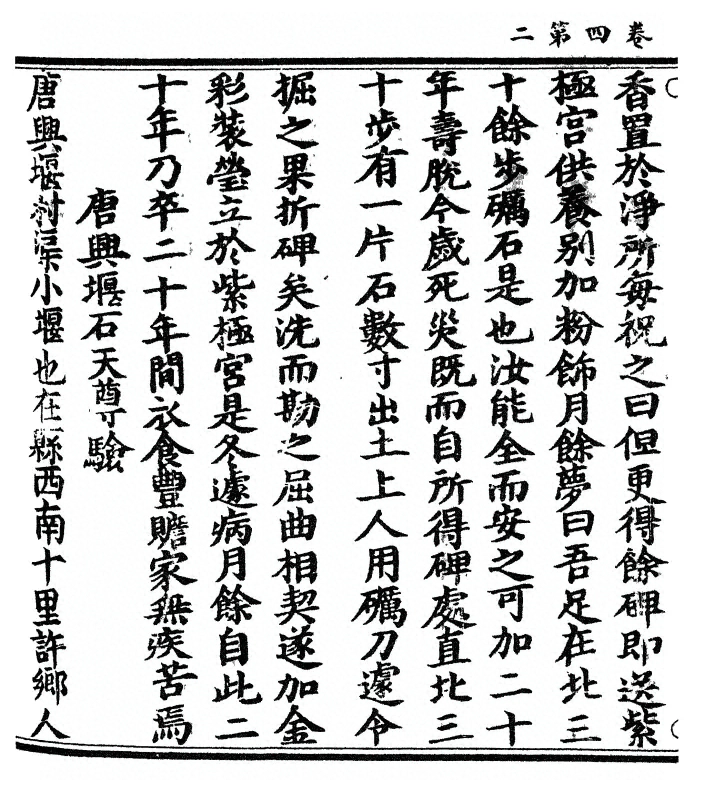 卷四第二
香置於淨所每祝之曰但更得餘碑即送紫
極宮供養別加粉飾月餘夢曰吾足在北三
十餘步礪石是也汝能全而安之可加二十
年壽脫今歲死災既而自所得碑處直北三
十步有一片石數寸出土上人用礪刀遽令
掘之果折碑矣洗而勘之屈曲相契遂加金
彩裝瑩立於紫極宮是冬遽病月餘自此二
十年乃卒二十年間衣食豐贍家無疾苦焉
唐興堰石天尊驗
唐興堰村渠小堰也在縣西南十里許鄉人